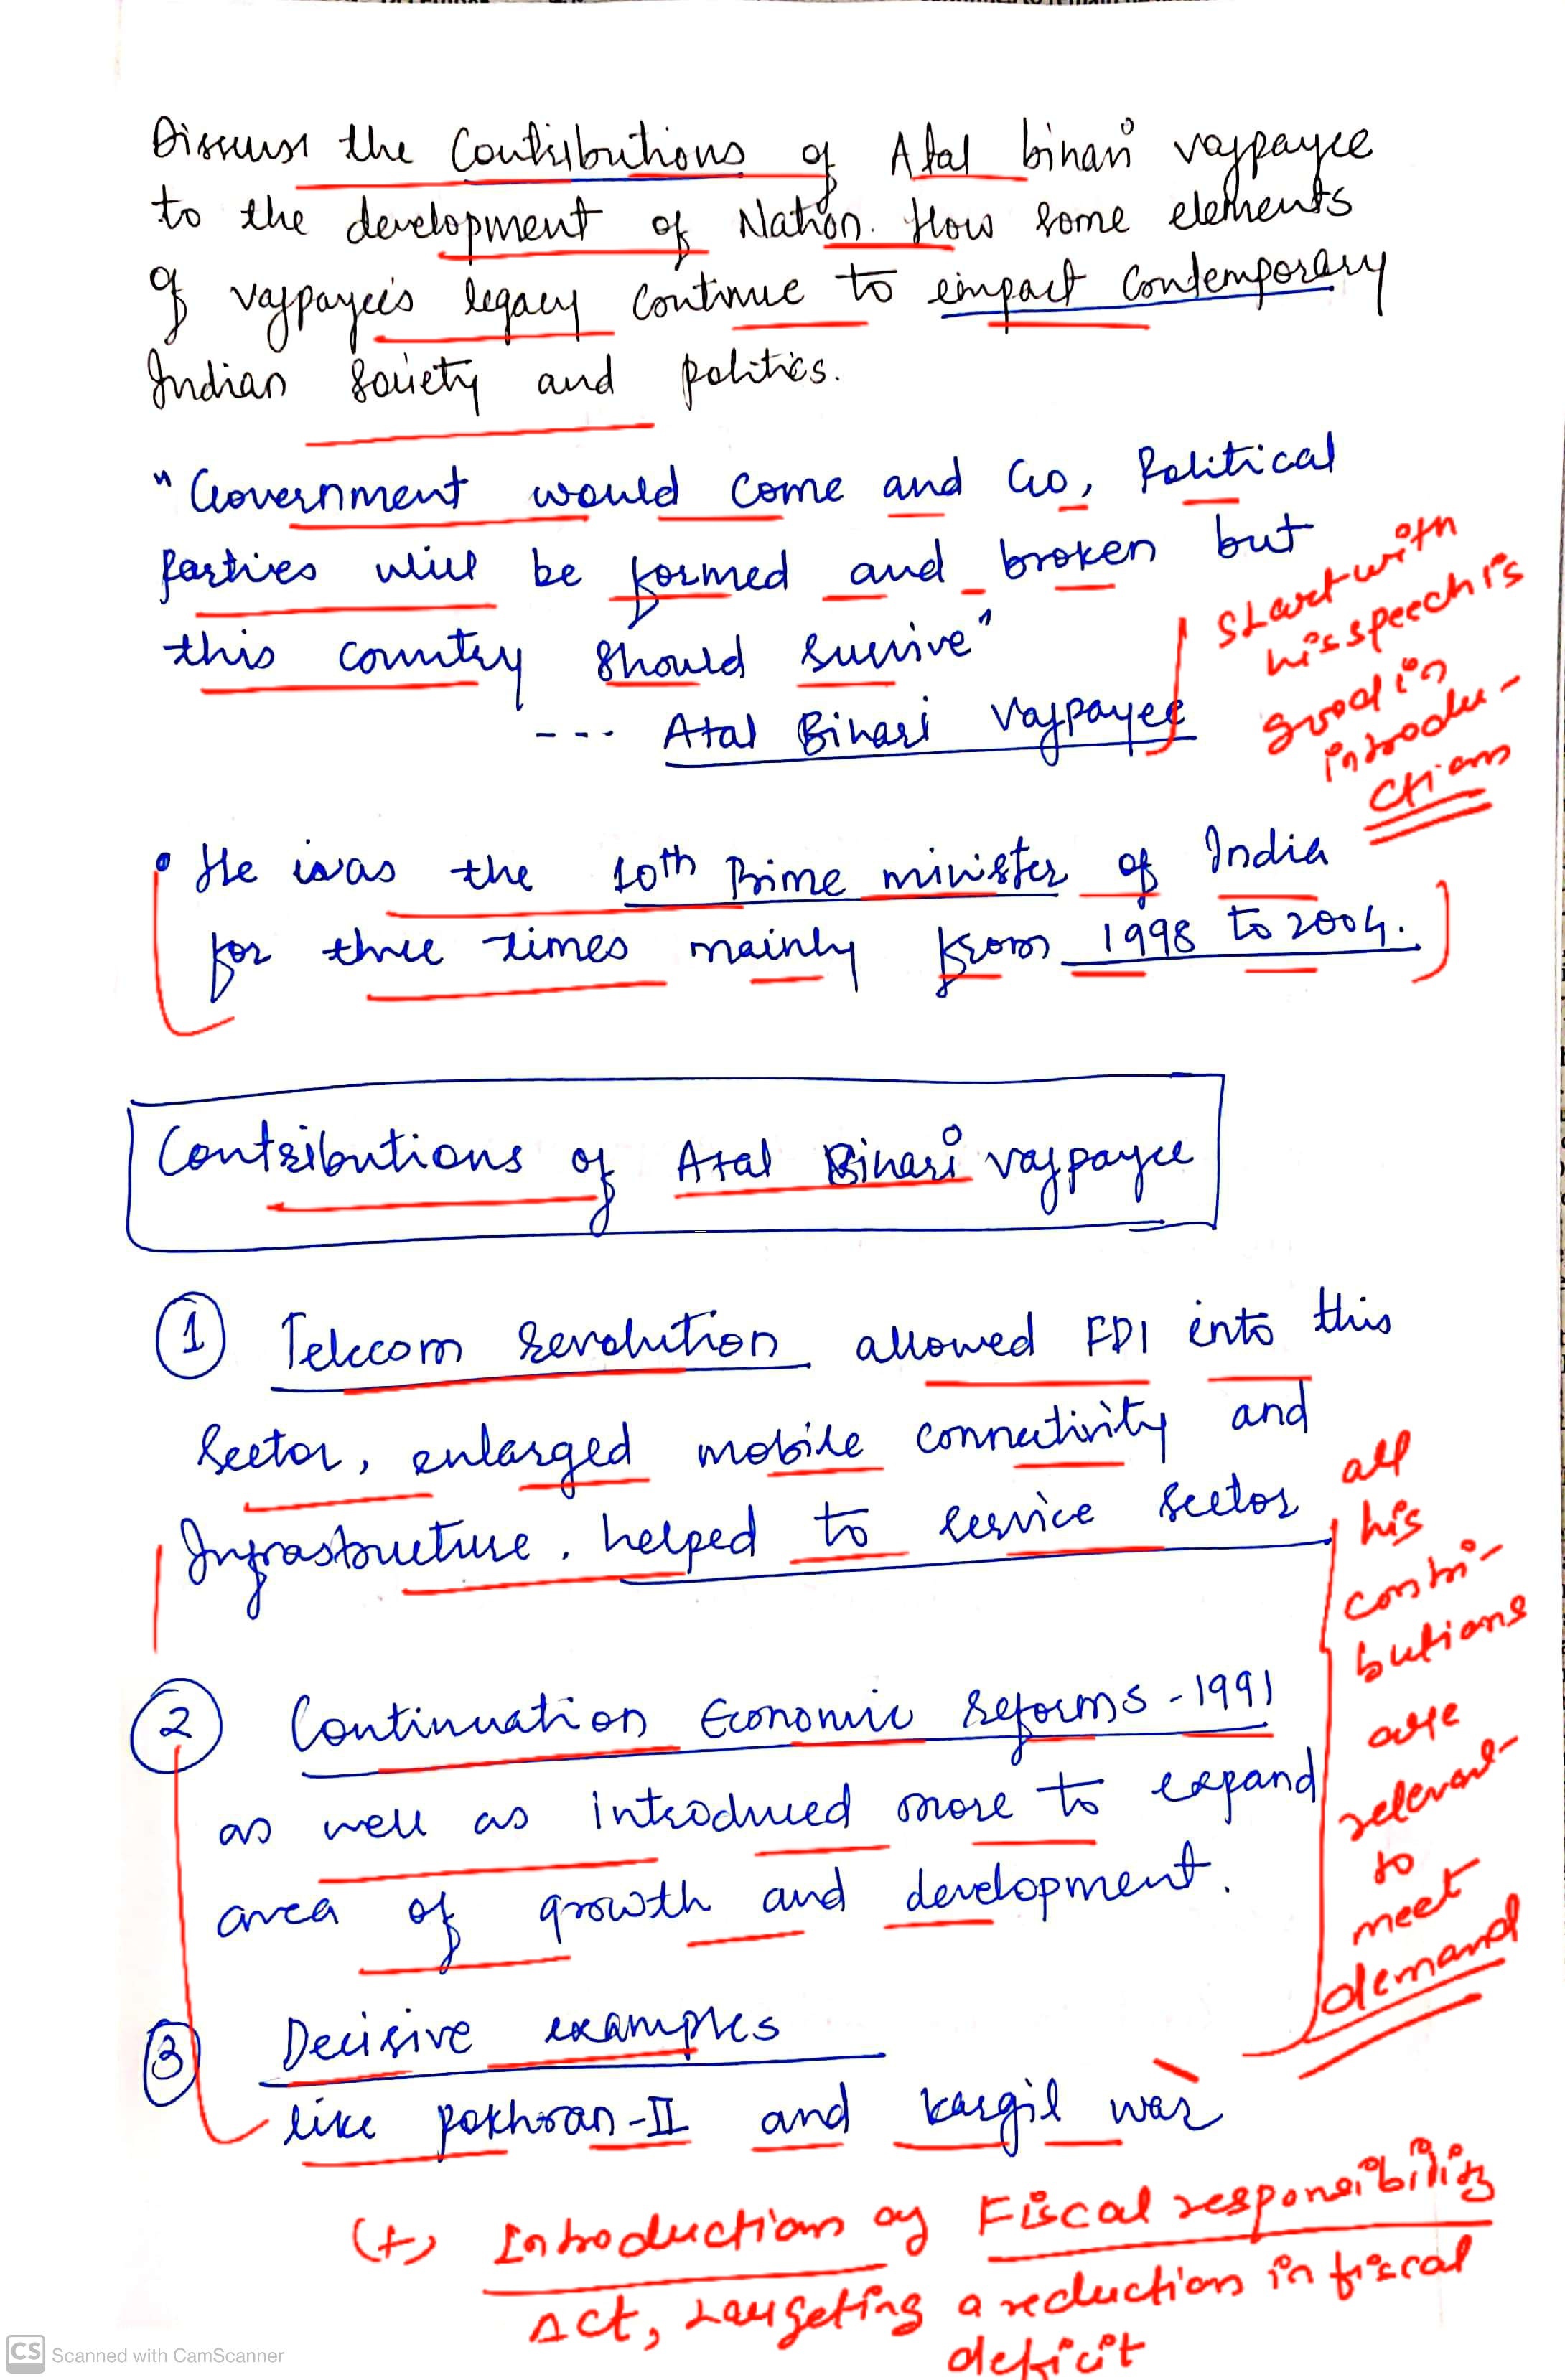 Discuss the Contributions of Atal bihari vajpayee
to the development of Nation. How some elements
of vajpayee's legacy continue to impact contemporary
Indian society and politics.
"Government would come and Go, Political
parties will be formed and broken but
this country should survive"
--- Atal Bihari Vajpayee
start with
his speech is
good in
introdu-
ctions
• He was the 10th Prime minister of India
for three times mainly from 1998 to 2004.
Contributions of Atal Bihari vajpayee
1 Telecom revolution allowed FDI into this
sector, enlarged mobile connectivity and
Infrastructure, helped to service sector
2 Continuation Economic reforms - 1991
as well as introduced more to expand
area of growth and development.
all
his
contri-
butions
are
relevant
to
meet
demand
3 Decisive examples
like pokhran-II and kargil war
(+) Introduction of Fiscal responsibility
Act, targeting a reduction in fiscal
deficit
CS Scanned with CamScanner